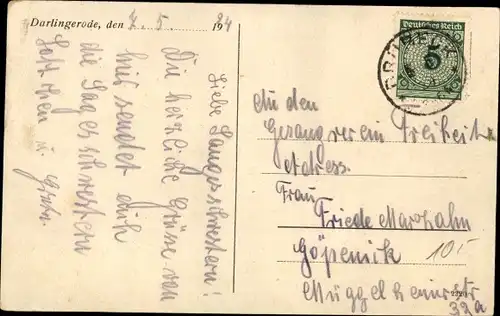 Darlingerode, den 7. 5. 1924
Liebe Sangesschwestern!
Die herzliche Grüsse von
hir sendet euch
die Sangesschwestern
u. Grete.
Deutsches Reich
5
An den
Gesangverein Freiheit
Adress.
Frau
Friede Marzahn
Göpenick 10
Müggelheimerstr
32a